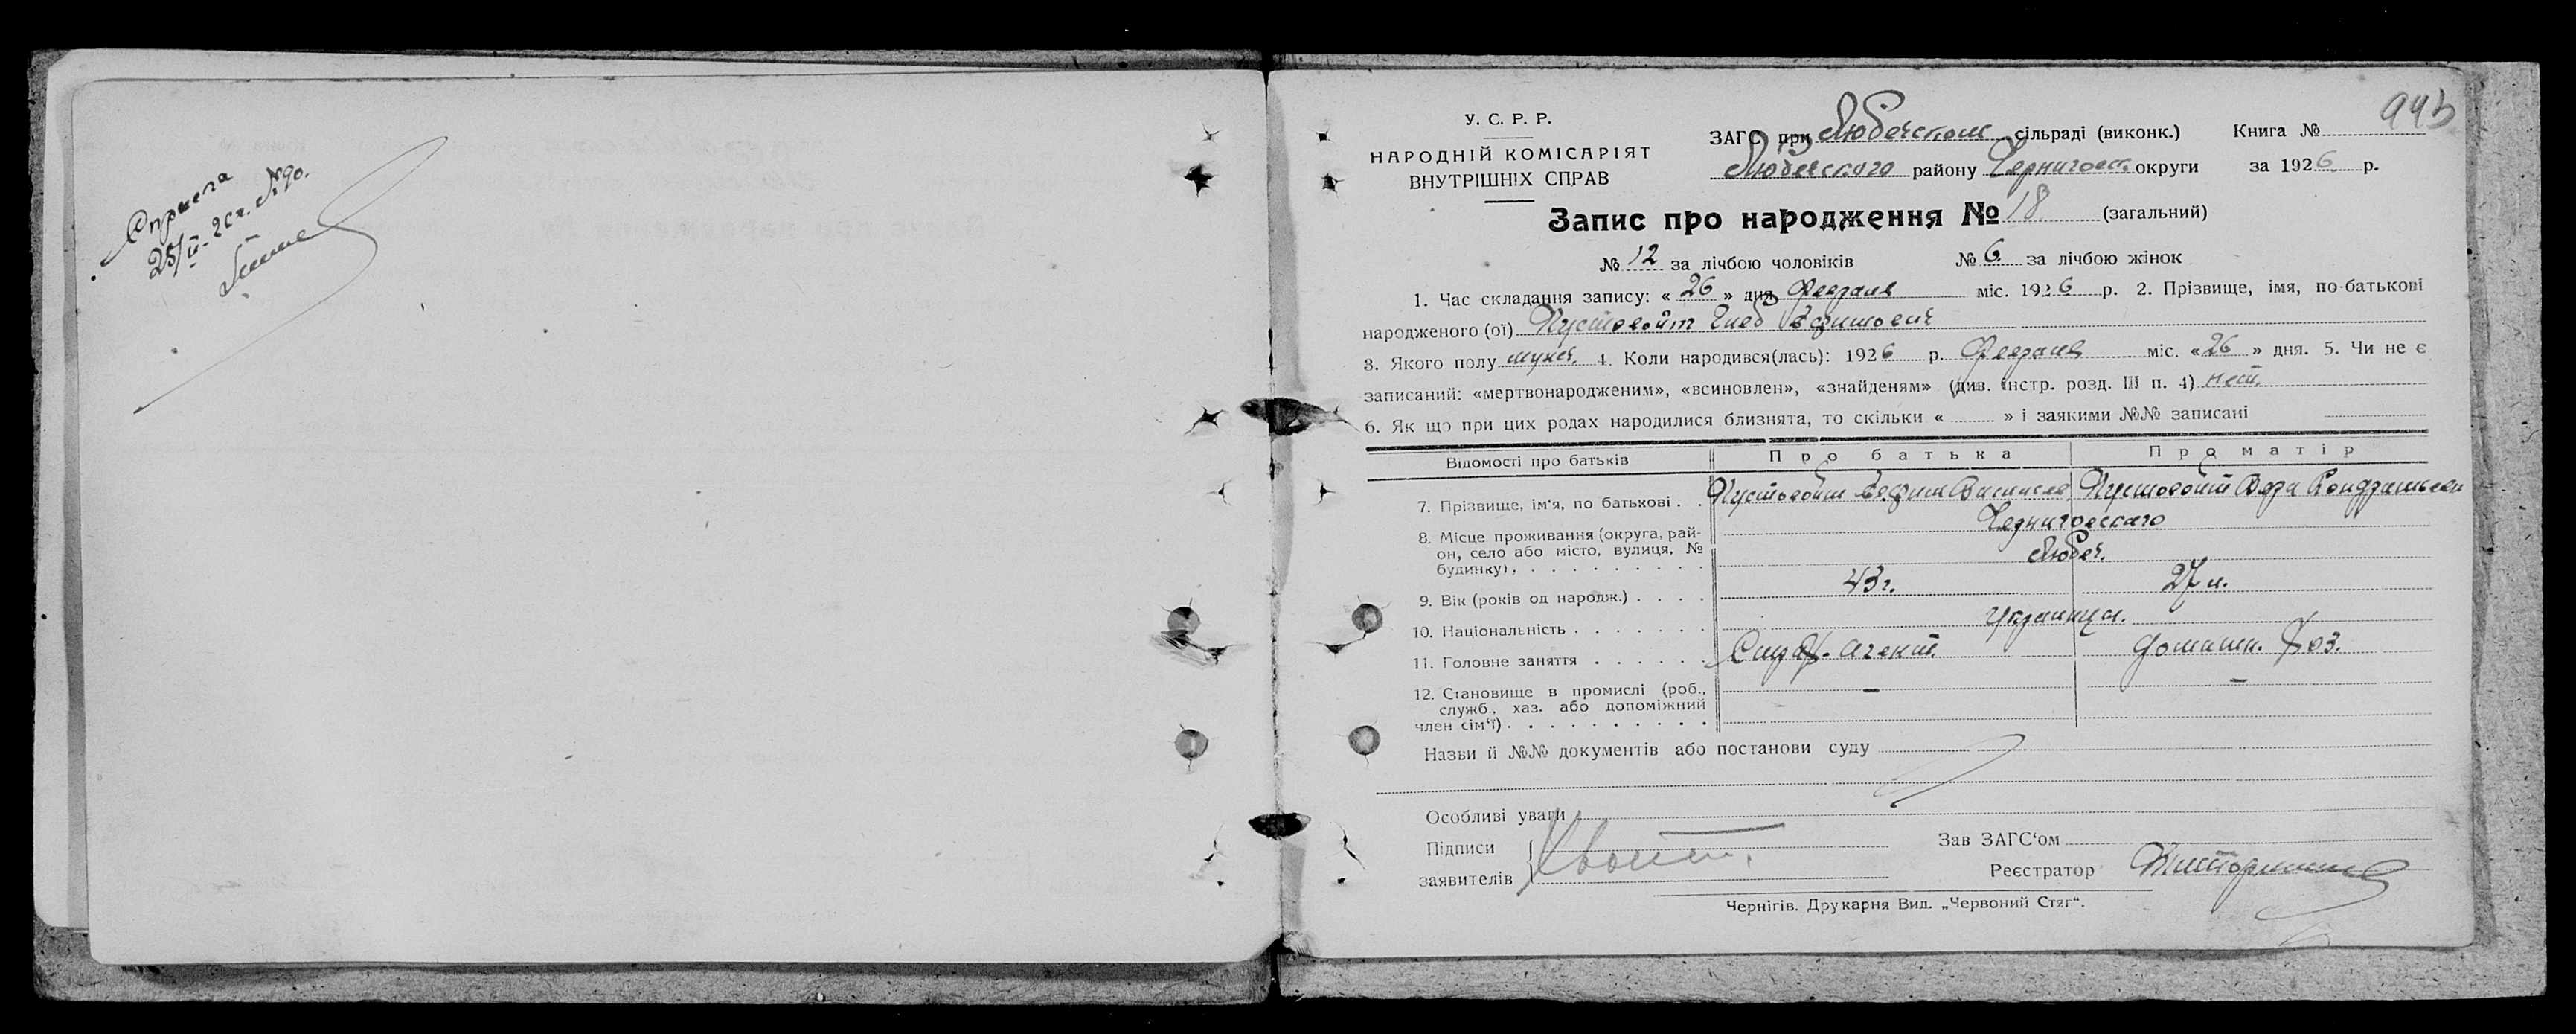 Справка
25/II-26г. №90.
993
У. С. Р. Р.
НАРОДНІЙ КОМІСАРІЯТ
ВНУТРІШНІХ СПРАВ
ЗАГС при Любечском сільраді (виконк.) Книга №
Любечскаго району Черниговск округи за 1926 р.
Запис про народження № 18 (загальний)
№ 12 за лічбою чоловіків № 6 за лічбою жінок
1. Час складання запису: « 26 » дня Февраля міс. 1926 р. 2. Прізвище, імя, по-батькові
народженого (ої) Пустовойт Глеб Ефимович
3. Якого полу мужс. 4. Коли народився(лась): 1926 р. Февраля міс. «26» дня. 5. Чи не є
записаний: «мертвонародженим», «всиновлен», «знайденям» (див. інстр. розд. III п. 4) нет.
6. Як що при цих родах народилися близнята, то скільки « » і заякими №№ записані
Відомості про батьків Про батька Про матір
7. Прізвище, ім'я, по батькові . . Пустовойт Ефим Василев Пустовойт Вера Кондратьевн
8. Місце проживання (округа, рай- Черниговскаго
он, село або місто, вулиця, № Любеч.
будинку), . . . . . . . . . .
9. Вік (років од народж.) . . . . 43 г. 27 л.
10. Національність . . . . . . . Украинцы.
11. Головне заняття . . . . . . агент. домашн. хоз.
12. Становище в промислі (роб., – –
служб., хаз. або допоміжний
член сім'ї) . . . . . . . . . .
Назви й №№ документів або постанови суду
Особливі уваги
Підписи Зав ЗАГС'ом
заявителів Реєстратор
Чернігів. Друкарня Вид. „Червоний Стяг“.